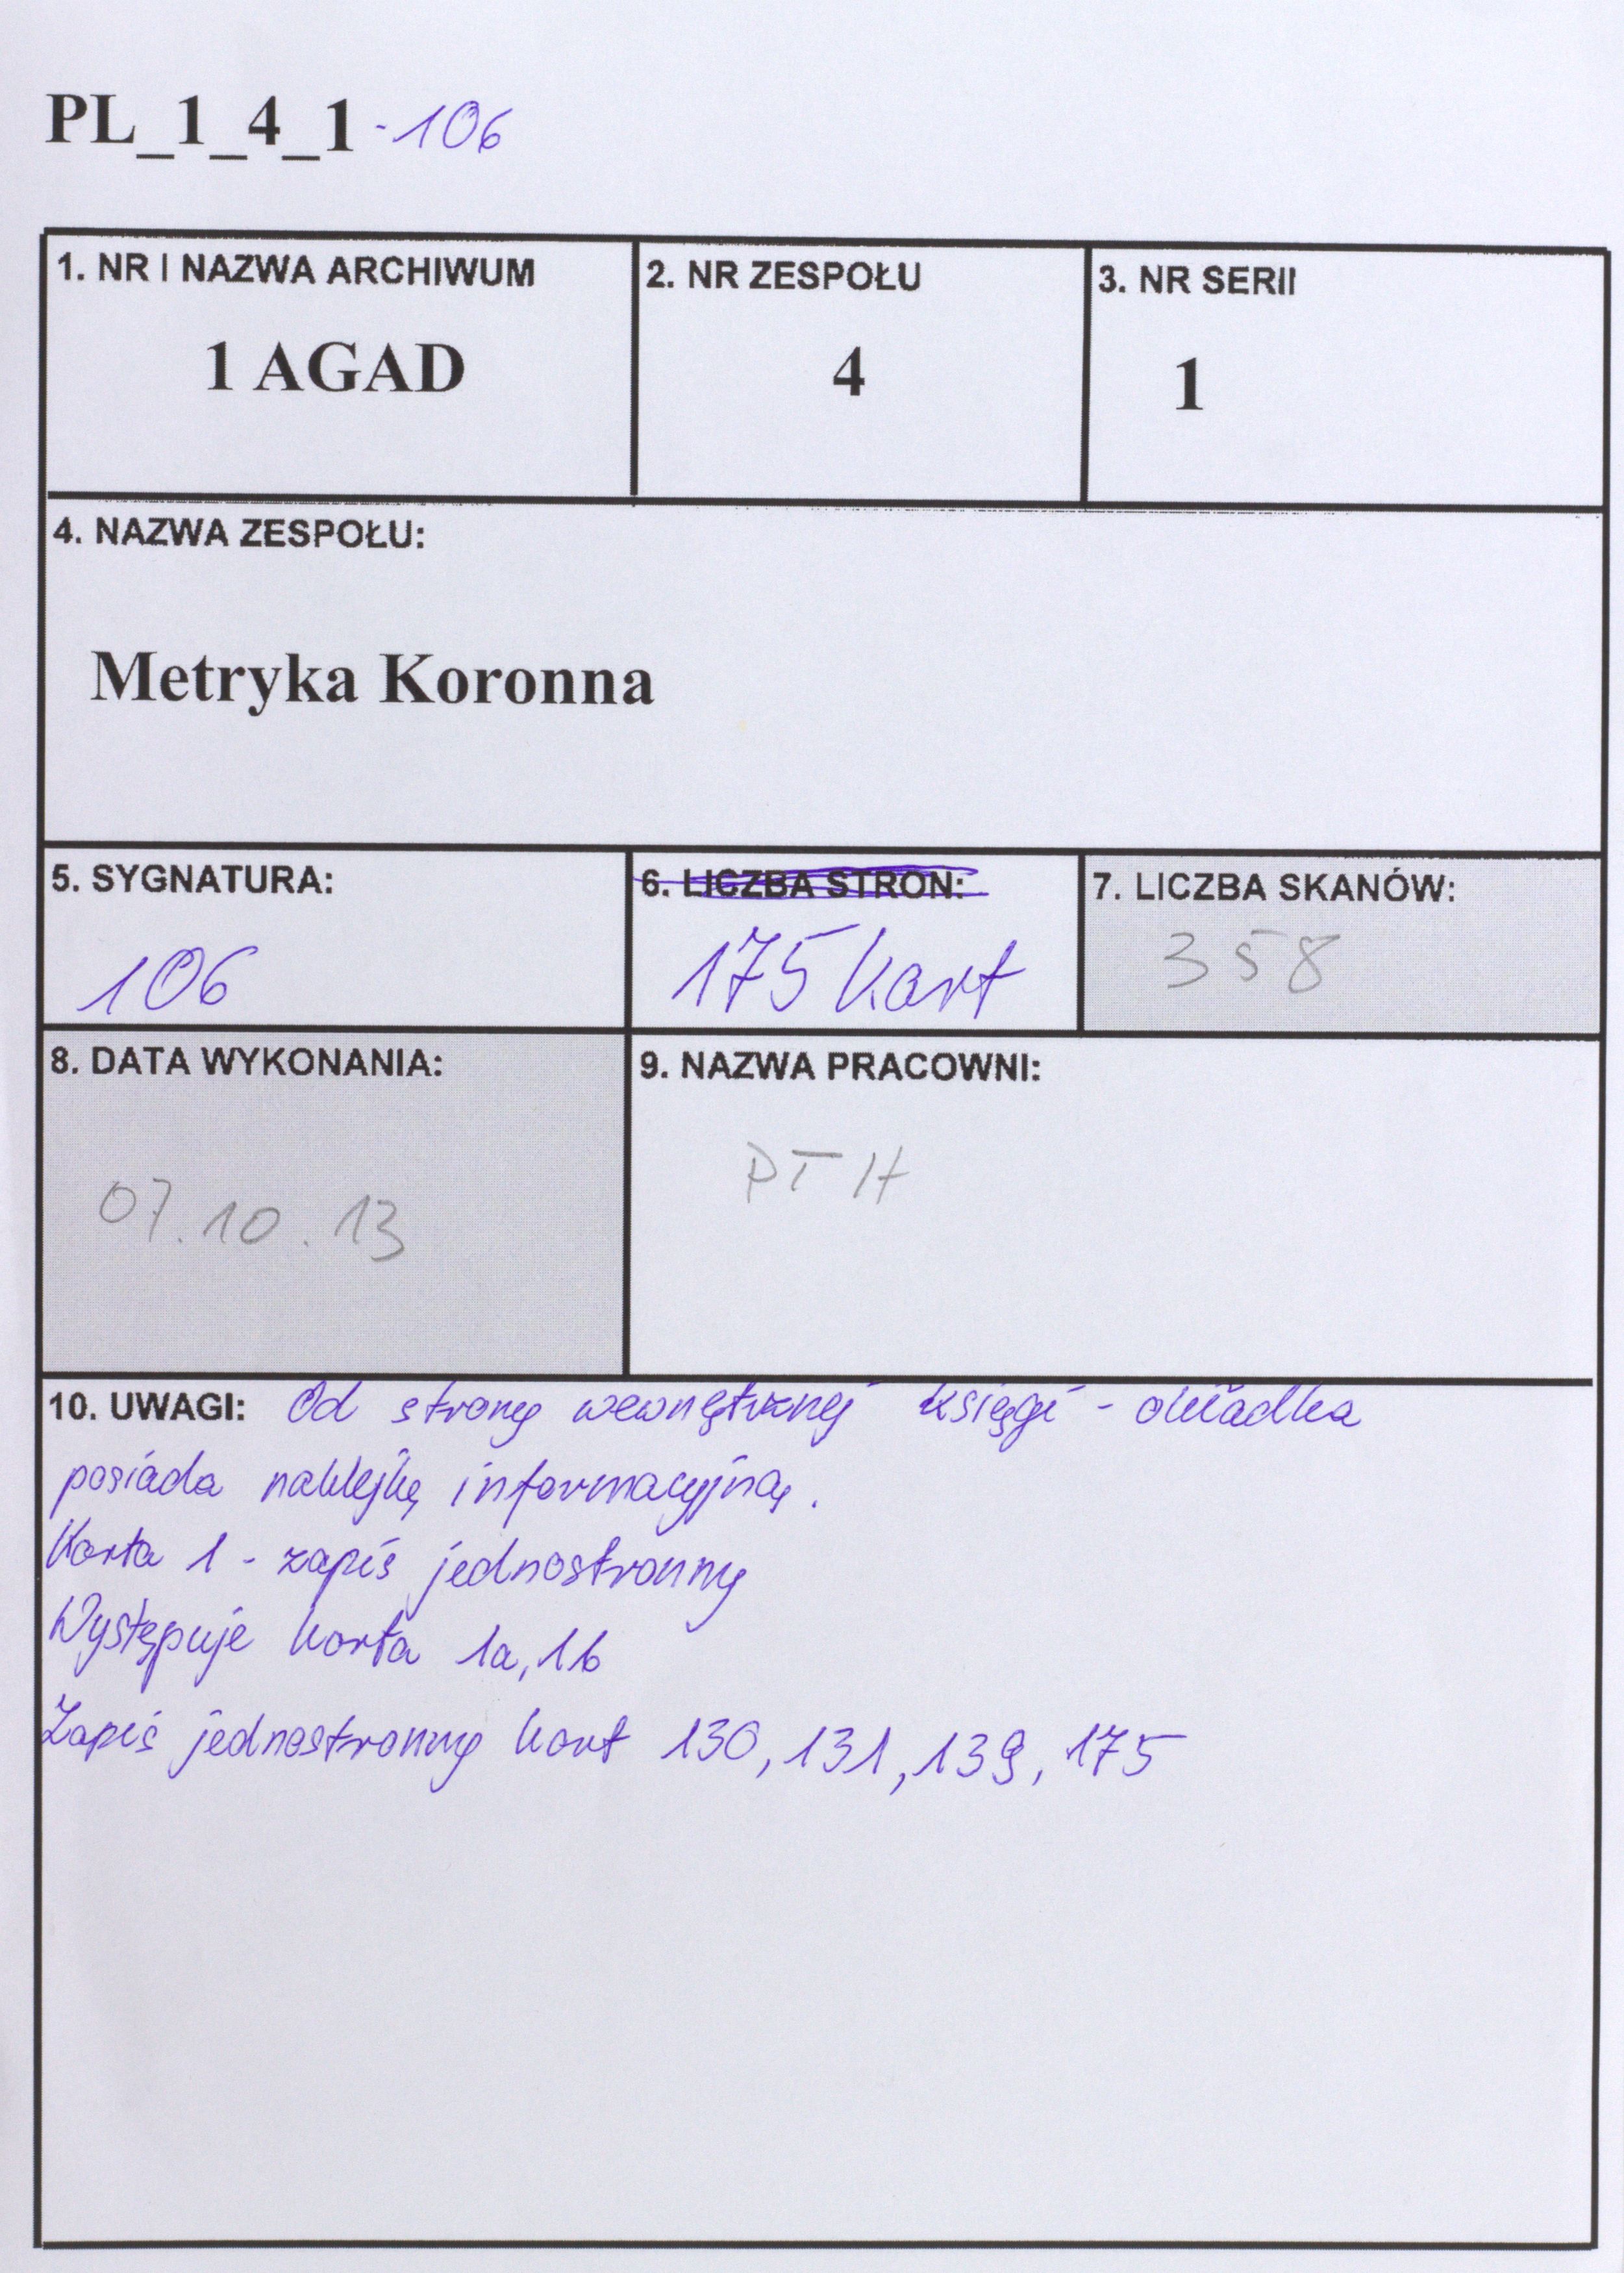 PL_1_4_1-106
1. NR I NAZWA ARCHIWUM
1 AGAD
2. NR ZESPOŁU
4
3. NR SERII
1
4. NAZWA ZESPOŁU:
Metryka Koronna
5. SYGNATURA:
106
6. LICZBA STRON:
175 kart
7. LICZBA SKANÓW:
358
8. DATA WYKONANIA:
07.10.13
9. NAZWA PRACOWNI:
PTH
10. UWAGI: Od strony wewnętrznej księgi - okładka
posiada naklejkę informacyjną.
Karta 1 - zapis jednostronny
Występuje karta 1a, 1b
Zapis jednostronny kart 130, 131, 139, 175